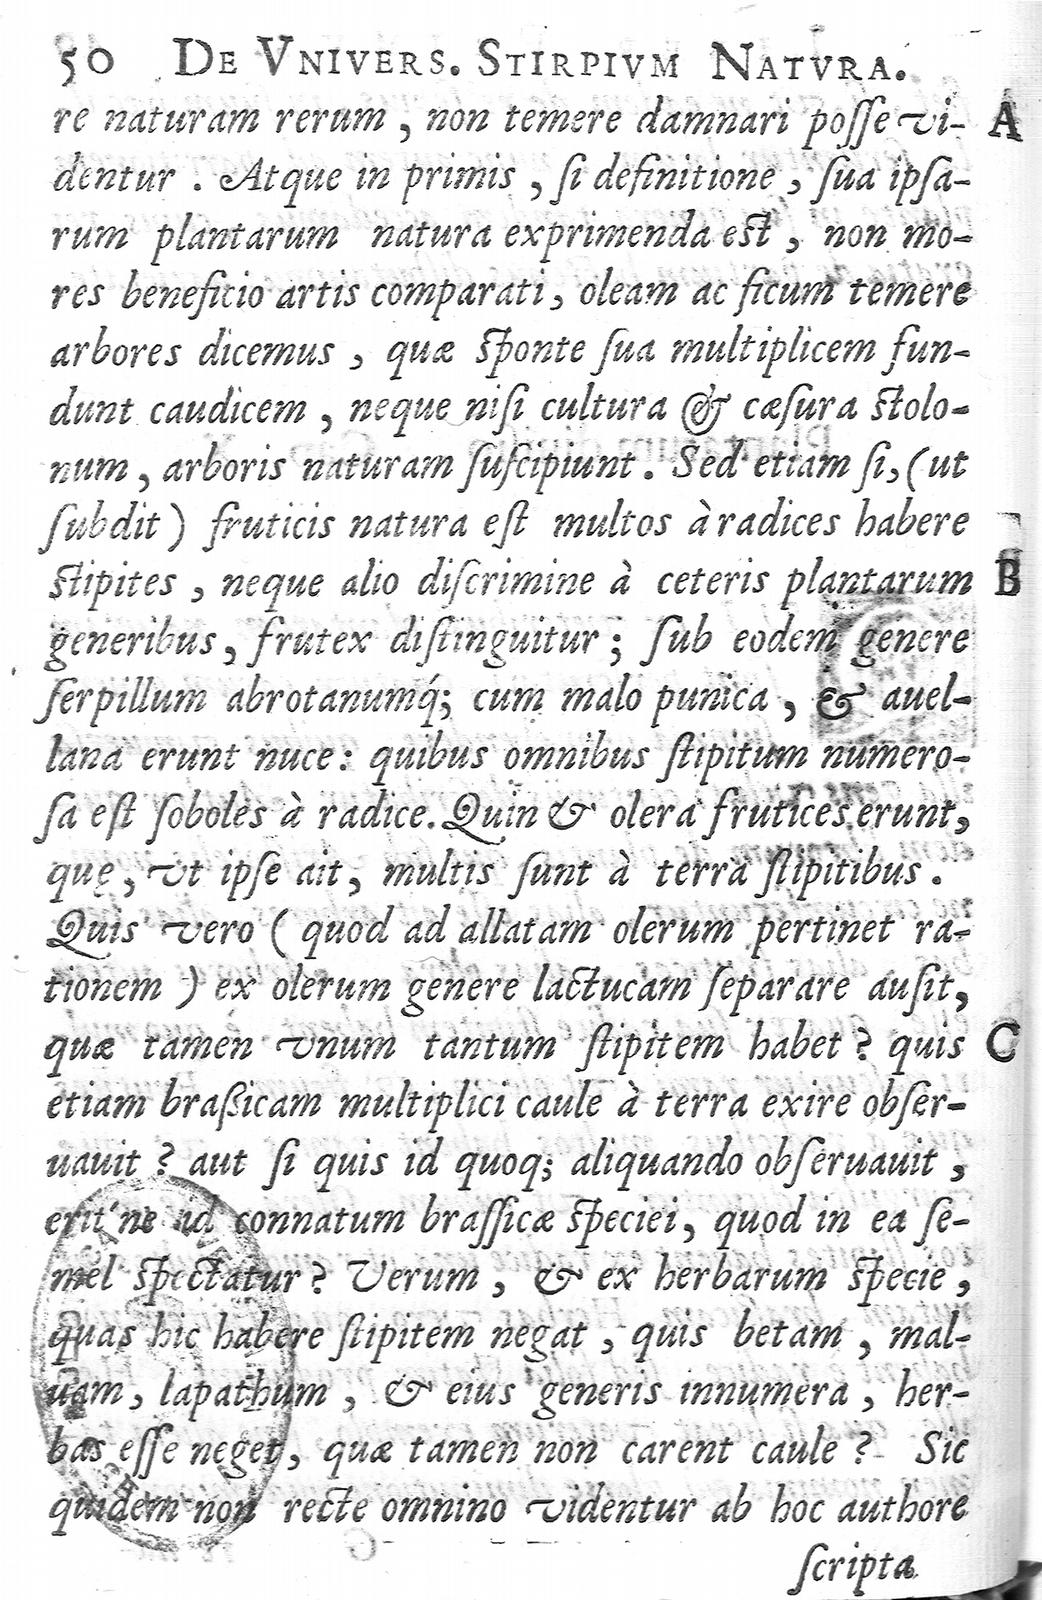 50 DE VNIVERS. STIRPIVM NATVRA.
re naturam rerum, non temere damnari posse vi- A
dentur. Atque in primis, si definitione, sua ipsa-
rum plantarum natura exprimenda est, non mo-
res beneficio artis comparati, oleam ac ficum temere
arbores dicemus, quæ sponte sua multiplicem fun-
dunt caudicem, neque nisi cultura & cæsura stolo-
num, arboris naturam suscipiunt. Sed etiam si, (ut
subdit) fruticis natura est multos à radices habere
stipites, neque alio discrimine à ceteris plantarum B
generibus, frutex distinguitur; sub eodem genere
serpillum abrotanumq́; cum malo punica, & auel-
lana erunt nuce: quibus omnibus stipitum numero-
sa est soboles à radice. Quin & olera frutices erunt,
quę, vt ipse ait, multis sunt à terra stipitibus.
Quis vero (quod ad allatam olerum pertinet ra-
tionem) ex olerum genere lactucam separare ausit,
quæ tamen vnum tantum stipitem habet? quis C
etiam braßicam multiplici caule à terra exire obser-
uauit? aut si quis id quoq; aliquando obseruauit,
erit'ne id connatum brassicæ speciei, quod in ea se-
mel spectatur? Verum, & ex herbarum specie,
quas hic habere stipitem negat, quis betam, mal-
uam, lapathum, & eius generis innumera, her-
bas esse neget, quæ tamen non carent caule? Sic
quidem non recte omnino videntur ab hoc authore
scripta